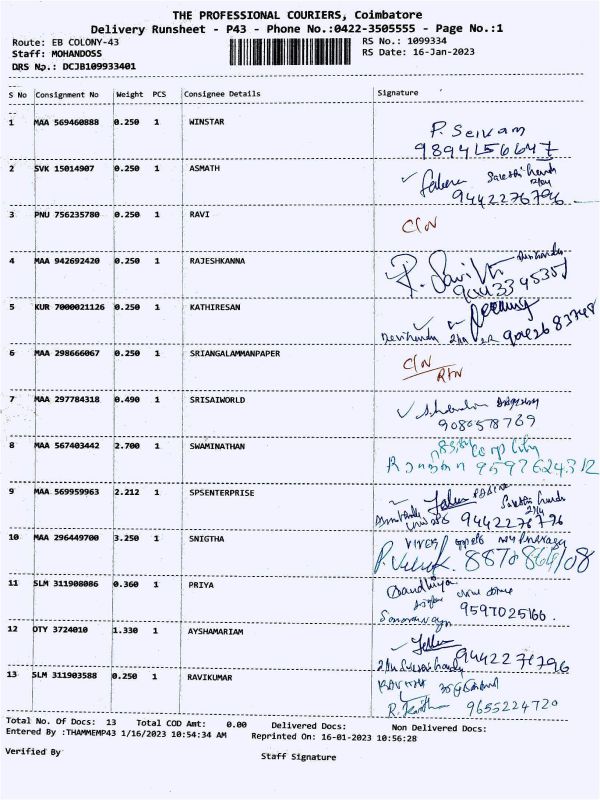 THE PROFESSIONAL COURIERS, Coimbatore
Delivery Runsheet - P43 - Phone No.:0422-3505555 - Page No.:1
Route: EB COLONY-43
RS No.: 1099334
Staff: MOHANDOSS
RS Date: 16-Jan-2023
DRS No.: DCJB109933401
S No Consignment No Weight PCS Consignee Details Signature
1 MAA 569460888 0.250 1 WINSTAR
P. Selvam
9894156647
2 SVK 15014907 0.250 1 ASMATH
9442276796
3 PNU 756235780 0.250 1 RAVI
C/N
4 MAA 942692420 0.250 1 RAJESHKANNA
5 KUR 7000021126 0.250 1 KATHIRESAN
6 MAA 298666067 0.250 1 SRIANGALAMMANPAPER
C/N
RTN
7 MAA 297784318 0.490 1 SRISAIWORLD
9080578769
8 MAA 567403442 2.700 1 SWAMINATHAN
9597624312
9 MAA 569959963 2.212 1 SPSENTERPRISE
9442276796
10 MAA 296449700 3.250 1 SNIGTHA
11 SLM 311908086 0.360 1 PRIYA
Sandhiya
9597025166
12 OTY 3724010 1.330 1 AYSHAMARIAM
9442276796
13 SLM 311903588 0.250 1 RAVIKUMAR
9655224720
Total No. Of Docs: 13 Total COD Amt: 0.00 Delivered Docs: Non Delivered Docs:
Entered By :THAMMEMP43 1/16/2023 10:54:34 AM Reprinted On: 16-01-2023 10:56:28
Verified By
Staff Signature